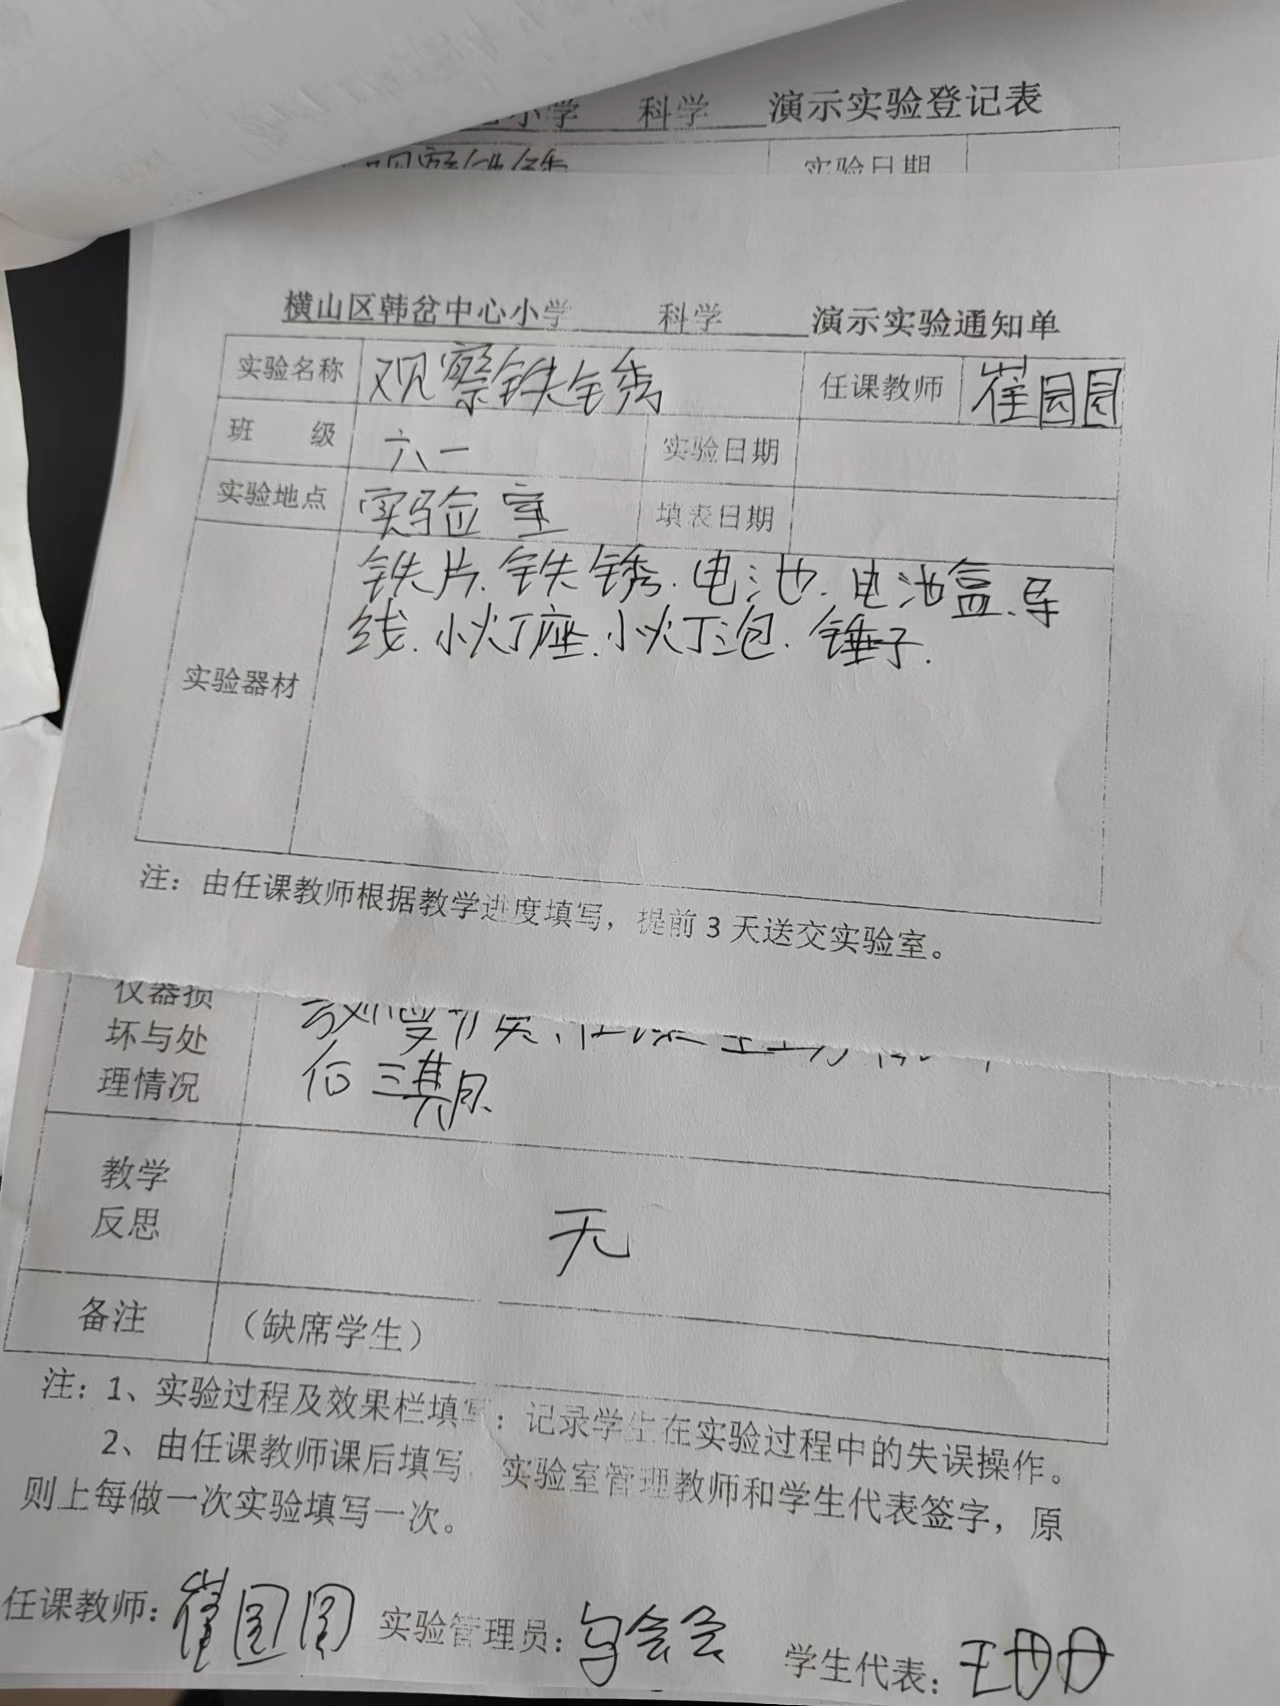 小学 科学 演示实验登记表
观察铁锈 实验日期
横山区韩岔中心小学 科学 演示实验通知单
实验名称 观察铁锈 任课教师 崔园园
班 级 六一 实验日期
实验地点 实验室 填表日期
实验器材 铁片.铁锈.电池.电池盒.导
线.小灯座.小灯泡.锤子.
注：由任课教师根据教学进度填写，提前3天送交实验室。
仪器损
坏与处
理情况
教学
反思 无
备注 （缺席学生）
注：1、实验过程及效果栏填写：记录学生在实验过程中的失误操作。
2、由任课教师课后填写 实验室管理教师和学生代表签字，原
则上每做一次实验填写一次。
任课教师：崔园园 实验管理员： 学生代表：王丹丹